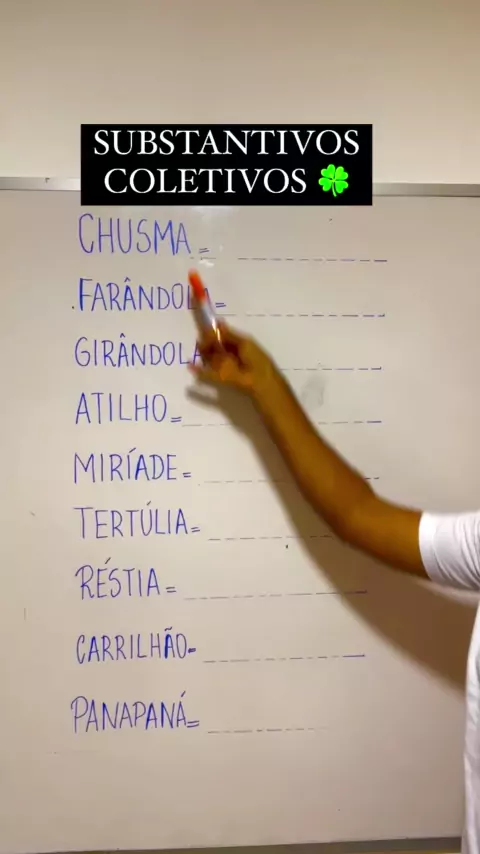 SUBSTANTIVOS
COLETIVOS
CHUSMA =
.FARÂNDOLA=
GIRÂNDOLA
ATILHO=
MIRÍADE=
TERTÚLIA=
RÉSTIA=
CARRILHÃO=
PANAPANÁ=